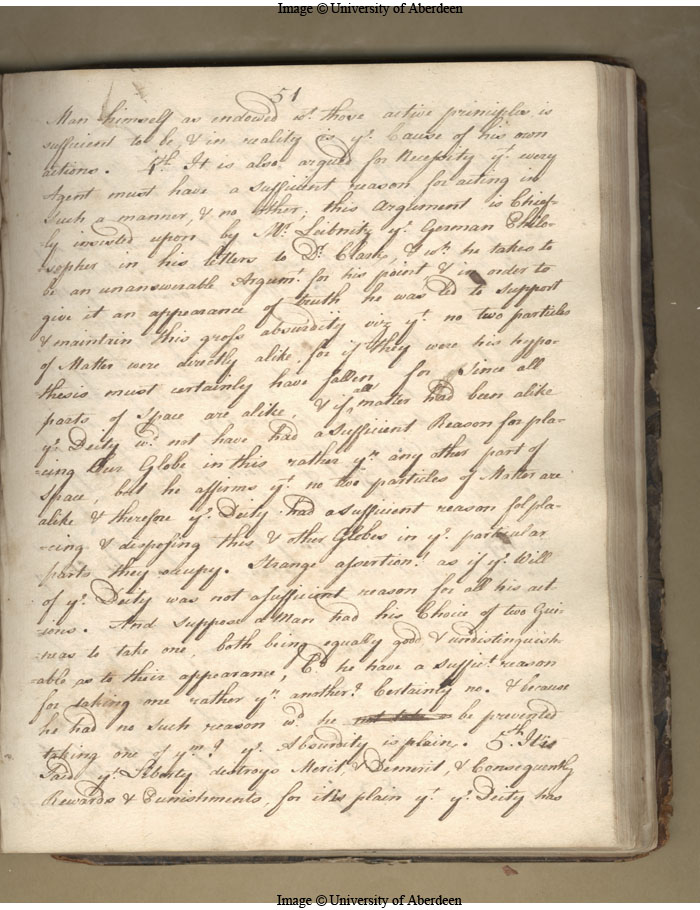 Image © University of Aberdeen
51
Man himself as endowed wt. those active principles is
sufficient to be, & in reality is ye. Cause of his own
actions. 4th. It is also argued for Necessity yt. every
Agent must have a sufficient reason for acting in
Such a manner, & no other, this argument is Chief-
ly insisted upon by Mr. Leibnitz ye. German Philo-
-sopher in his letters to Dr. Clark, & wch. he takes to
be an unanswerable Argumt. for his point & in order to
give it an appearance of truth he was led to support
& maintain this gross absurdity viz yt. no two particles
of Matter were directly alike, for if they were his hypo-
thesis must certainly have fallen, for Since all
parts of Space are alike, & if all matter had been alike
ye. Deity wd. not have had a sufficient Reason for pla-
-cing Our Globe in this rather yn. any other part of
Space, but he affirms yt. no two particles of Matter are
alike & therefore ye. Deity had a sufficient reason for pla-
-cing & disposing this & other Globes in ye. particular
parts they occupy. Strange assertion! as if ye. Will
of ye. Deity was not a sufficient reason for all his act-
-ions. And suppose a Man had his Choice of two Gui-
neas to take one, both being equally good & undistinguish-
-able as to their appearance, Cd. he have a sufficit. reason
for taking one rather yn. another? Certainly no. & because
he had no such reason wd. he be prevented
taking one of ym.? ye. Absurdity is plain. 5th. It is
Said ye. Liberty destroys Merit, & Demerit, & Consequently
Rewards & Punishments, for it is plain yt. ye. Deity has
Image © University of Aberdeen